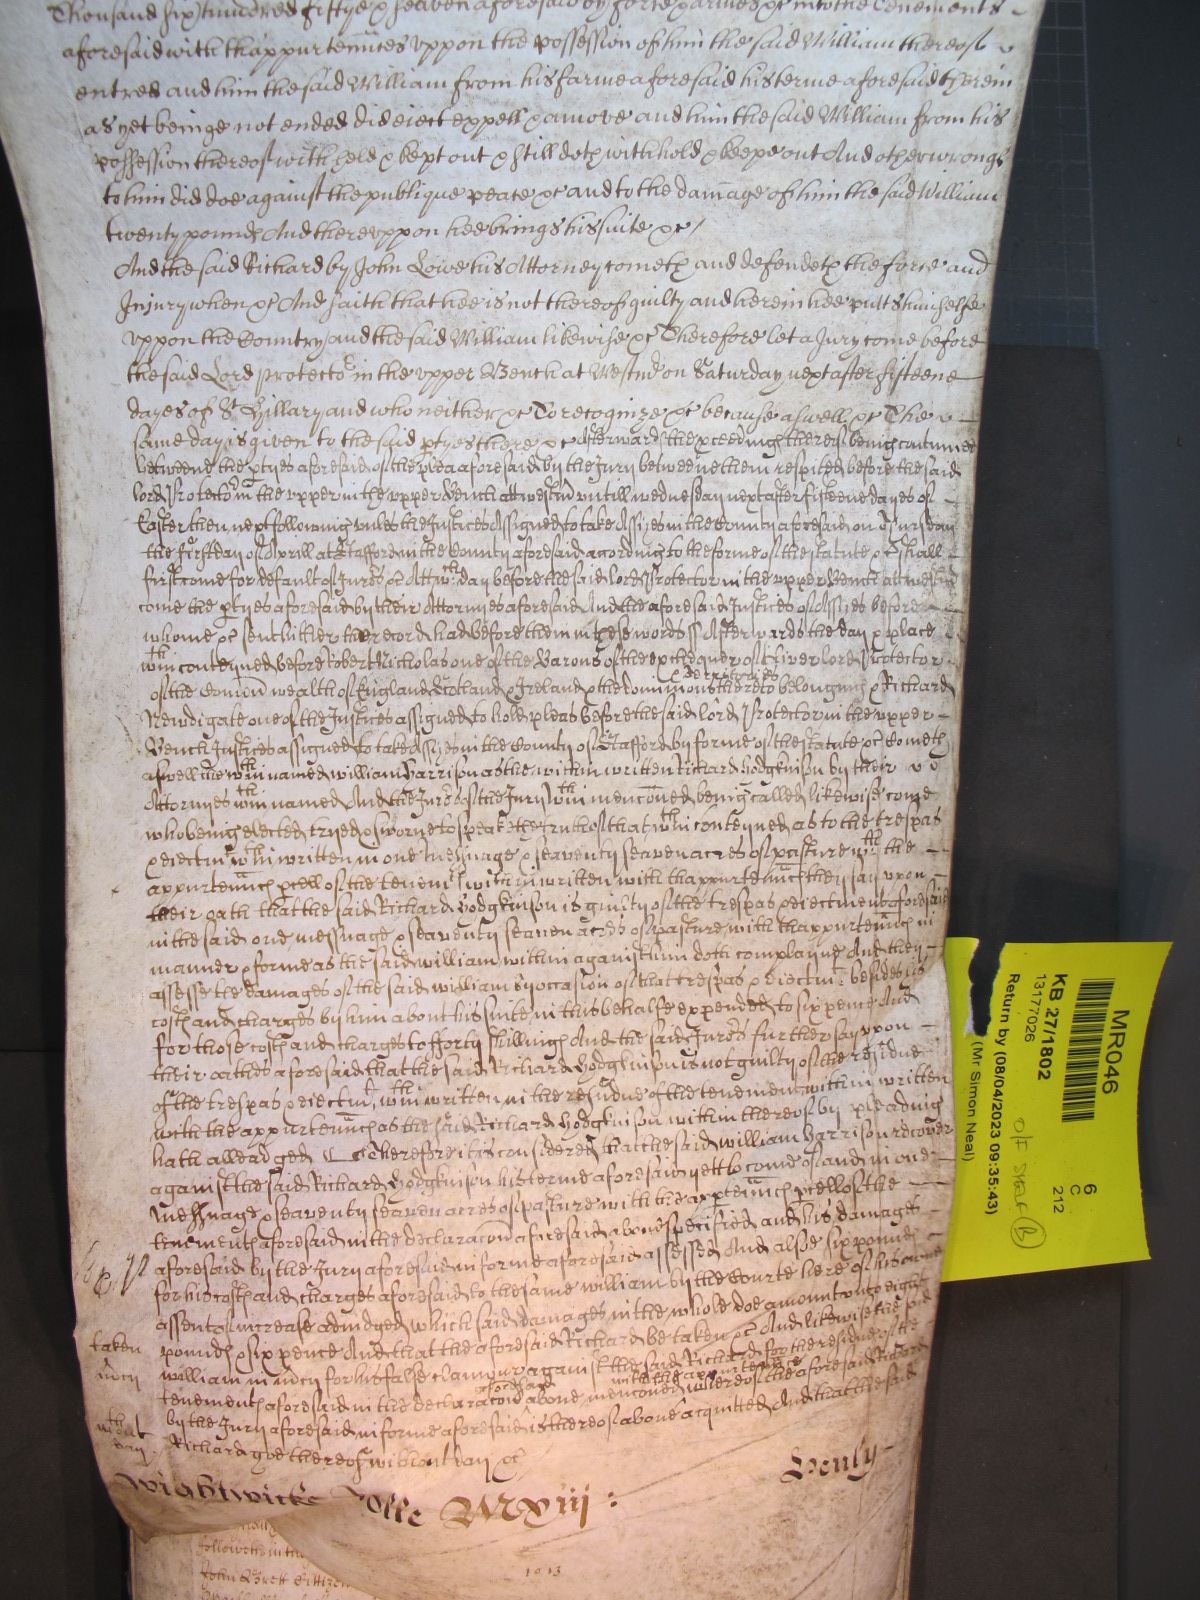 Thousand six hundred fiftye & seaven aforesaid by force & armes &c into the Tenements
aforesaid with thappurtennces vppon the possession of him the said William thereof
entred and him the said William from his farme aforesaid his terme aforesaid therein
as yet beinge not ended did eiect expell & amove and him the said William from his
possession thereof withheld & kept out & still doth withhold & keepe out And other wrongs
to him did doe against the publique peace &c and to the damage of him the said William
twenty pounds And therevppon hee brings his suite &c
And the said Richard by John Lowe his Attorney cometh and defendeth the force and
Injury when &c And saith that hee is not thereof guilty and herein hee putts himselfe
vppon the Country and the said William likewise &c Therefore let a Jury come before
the said Lord protector in the vpper Bench at Westmr on Saturday next after fifteene
dayes of St Hillary and who neither &c To recognize &c because aswell &c The
same day is given to the said ptyes there &c Afterwards the pceedings thereof being continued
betweene the ptyes aforesaid of the plea aforesaid by the Jury betweene them respited before the said
lord Protector in the vpper in the vpper Bench att westmr vntill wednesday next after fifteene dayes of
Easter then next following vnles the Justices Assigned to take Assizes in the County aforesaid on Thursday
the first day of Aprill at Stafford in the County aforesaid acording to the forme of the statute &c shall
first come for default of Jurors &c Att wch day before the said lord Protector in the vpper Bench att westmr
come the ptyes aforesaid by their Attornies aforesaid And the aforesaid Justices of Assizes before
whome &c sent hither the record had before them in these words ss Afterwards the day & place
wthin conteyned before Robert Nicholas one of the Barons of the exchequer of Oliver lord Protector
of the Comon wealth of England Scotland & Ireland & the dominions & Territories thereto belonging & Richard
Newdigate one of the Justices assigned to hold pleas before the said lord Protector in the vpper
Bench Justices assigned to take Assizes in the County of Stafford by forme of the statute &c Cometh
aswell the wthin named william Harrison as the within written Richard Hodgkinson by their
Attornyes wthin named And the Jurors of the Jury wthin menconed being called likewise come
who being elected tryed & sworne to speake the truth of that wthin conteyned as to the trespas
& eiectmt wthin written in one messuage & seaventy seaven acres of pasture wth the
appurtennces pcell of the tenemts within written with thappurtennces they say vpon
their oath that the said Richard Hodgkinson is guilty of the trespas & eiectment aforesaid
in the said one messuage & seaventy seaven acres of pasture with thappurtennces in
manner & forme as the said william within against him doth complayne And they
assesse the damages of the said william by occasion of that trespas & eiectmt besides his
costs and charges by him about his suite in this behalfe expended to six pence And
for those costs and charges to fforty shillings And the said Jurors further say vpon
their oathes aforesaid that the said Richard Hodgkinson is not guilty of the residue
of the trespas & eiectmt wthin written in the residue of the tenements within written
with the appurtennces as the said Richard Hodgkinson within thereof by pleading
hath alleadged Therefore it is considered that the said william Harrison recover
against the said Richard Hodgkinson his terme aforesaid yett to come of and in one
Messuage & seaventy seaven acres of pasture with the apptennces pcell of the
tenements aforesaid in the declaracon aforesaid above specified and his damages
aforesaid by the Jury aforesaid in forme aforesaid assessed And alsoe six pounds
for his costs and charges aforesaid to the same william by the Courte here of his owne
assent of increase adiudged which said damages in the whole doe amount vnto eight
pounds & six pence And that the aforesaid Richard be taken &c And likewise the said
taken
william in mercy for his false clamour against the said Richard for the residue of the
mercy
tenements aforesaid in the declaracon aforesaid above menconed with the appurtennces whereof the aforesaid Richard
by the Jury aforesaid in forme aforesaid is thereof above acquitted And that the said
Richard goe thereof without day &c
without
day
Wightwicke Rolle MDxiij :
1013
followeth in the
John Brett Cittizen
MR046
KB 27/1802
13177026
Return by (08/04/2023 09:35:43)
(Mr Simon Neal)
6
C
212
O/S Shelf B